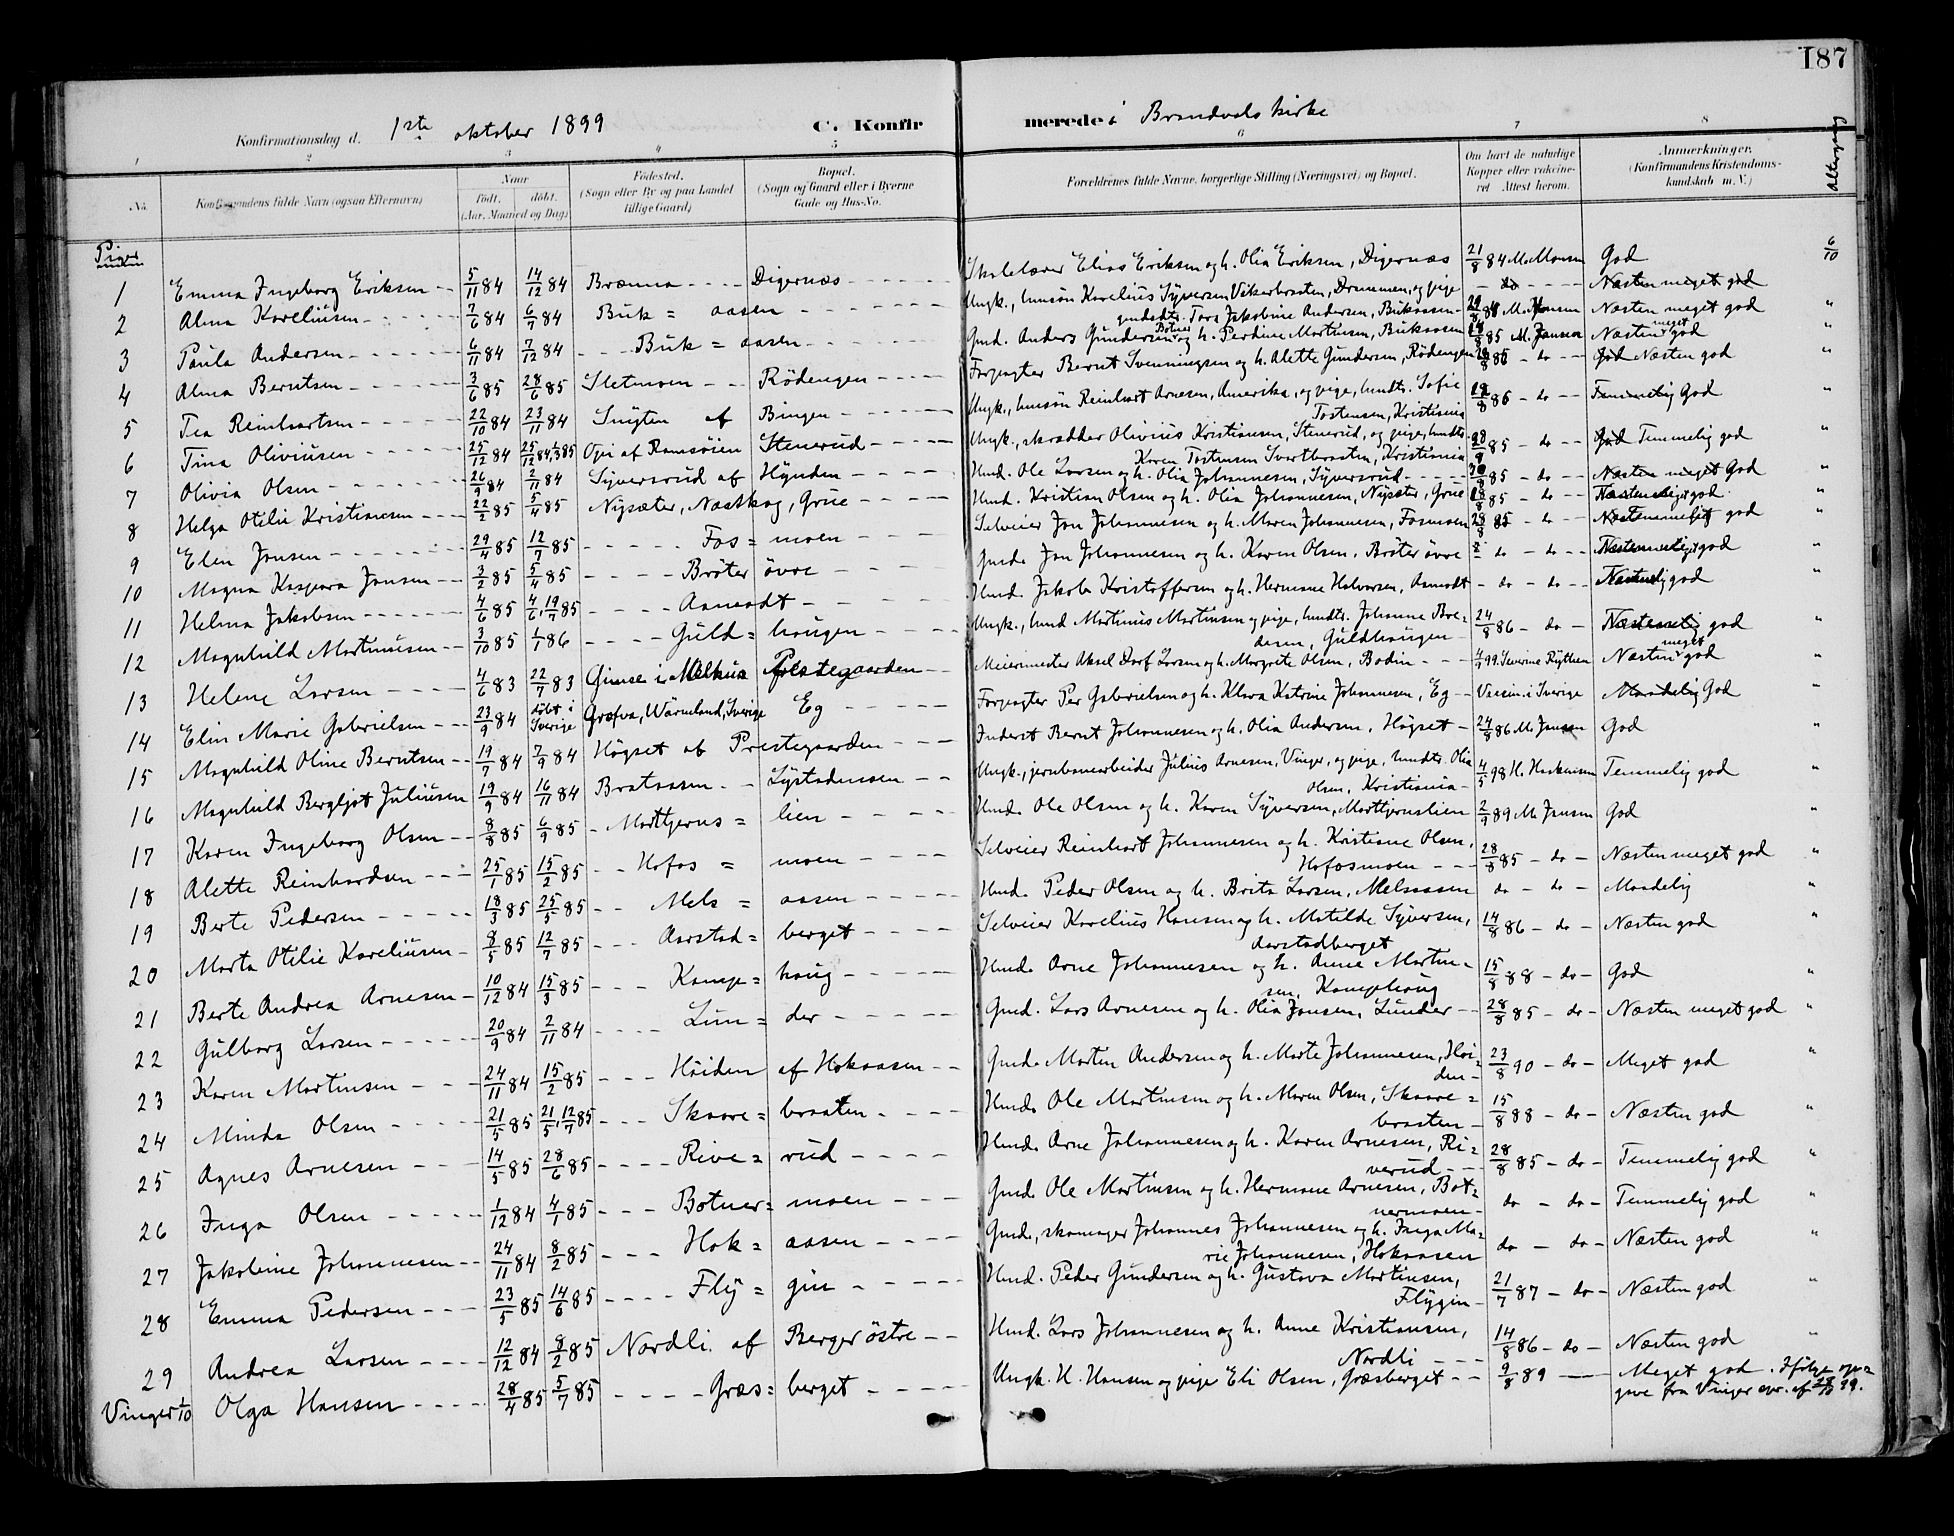 187
Konfirmationsdag d. 1ste oktober 1899 C. Konfir merede i Brandvals kirke
1 2 3 4 5 6 7 8
No. Konfirmandens fulde Navn (ogsaa Efternavn) Naar født. døbt. (Aar, Maaned og Dag) Fødested. (Sogn eller By og paa Landet tillige Gaard) Bopæl. (Sogn og Gaard eller i Byerne Gade og Hus-No. Forældrenes fulde Navne, borgerlige Stilling (Næringsvei) og Bopæl. Om havt de naturlige Kopper eller vaccineret Attest herom. Anmærkninger. (Konfirmandens Kristendomskundskab m. V.) Altergang
Piger
1 Emma Ingeborg Eriksen 5/11 84 14/12 84 Brænna Digernæs Skolelærer Elias Eriksen og h. Olia Eriksen, Digernæs 21/8 84 M. Monsen God 6/10
2 Alma Koreliusen 7/6 84 6/7 84 Buk = aasen Ungk., husmsøn Korelius Syversen Vikerbraaten, Drammen, og pige gmdsdtr. Tora Jakobine Andersen, Bukaasen - do - Næsten meget god
3 Paula Andersen 6/11 84 7/12 84 Buk = aasen Gmd. Anders Gundersen og h. Perdine Martinsen, Bukaasen M. Jansen Næsten meget god "
4 Alma Berntsen 3/6 85 28/6 85 Sletmoen Rödengen Forpagter Bernt Svenningsen og h. Alette Gundersen, Rödengen 85 - do - Næsten god "
5 Tea Reinhartsen 22/10 84 23/11 84 Snugten af Bingen Ungk., husmsøn Reinhart Arnesen, Amerika, og pige, husmdtr. Sofie Tostensen, Kristiania 86 - do - God "
6 Tina Oliviusen 25/12 84 Opi af Ramsöien Stenerud Ungk., skrædder Olivius Kristiansen, Stenerud, og pige, husmdtr. Karen Tostensen Svartbraaten, Kristiania 28/8 85 - do - Temmelig god "
7 Olivia Olsen 26/9 84 2/11 84 Syversrud af Hynden Husmd. Ole Larsen og h. Olia Johannesen, Syversrud 85 - do - God "
8 Helga Otilie Kristiansen 22/2 85 5/4 85 Nysæter, Næstkog, Grue Husmd. Kristian Olsen og h. Olia Johannesen, Nysæter, Grue 85 - do - god "
9 Elen Jansen 29/4 85 12/7 85 Fos = moen Selveier Jan Johannesen og h. Maren Johannesen, Fosmoen 28/8 85 - do - god "
10 Magna Kaspara Jansen 3/2 85 5/4 85 Bröter övre Gmd. Jan Johannesen og h. Karen Olsen, Bröter övre do - do - god "
11 Helma Jakobsen 4/6 85 4/6, 19/7 85 Aamodt Husmd. Jakob Kristoffersen og h. Hermane Halvorsen, Aamodt - do - do - god "
12 Magnhild Martinusen 3/10 85 1/1 86 Guld = haugen Ungk., husmd Martinus Martinsen og pige, husmdtr. Johanne Boedesen, Guldhaugen 24/8 86 - do - god "
13 Helene Larsen 4/6 83 22/7 83 Gimse i Melhus Prestegaarden Meierimester Aksel Dorf Larsen og h. Margrete Olsen, Bodin 4/9 99. Severine Rytter Næsten meget god "
14 Elin Marie Gabrielsen 23/9 84 döbt i Sverige Græfva, Wärmland, Sverige Eg Forpagter Per Gabrielsen og h. Klara Katrine Johannesen, Eg Vaccin. i Sverige God "
15 Magnhild Oline Berntsen 19/7 84 7/9 84 Högset af Prestegaarden Inderst Bernt Johannesen og h. Olia Andersen, Högset 24/8 86 M. Jansen God "
16 Magnhild Bergljot Juliusen 19/9 84 16/11 84 Brataasen Lystadmoen Ungk., jernbanearbeider Julius Arnesen, Vinger, og pige, husmdtr. Olia Olsen, Kristiania 4/5 98 H. Haakensen Temmelig god "
17 Karen Ingeborg Olsen 8/8 85 6/9 85 Morttjerns = lien Husmd. Ole Olsen og h. Karen Syversen, Morttjernslien 2/9 89 M. Jansen God "
18 Alette Reinhardsen 25/1 85 15/2 85 Hofos = moen Selveier Reinhart Johannesen og h. Kristiane Olsen, Hofosmoen 28/8 85 - do - Næsten meget god "
19 Berte Pedersen 18/3 85 25/5 85 Mels = aasen Husmd. Peder Olsen og h. Brita Larsen, Melsaasen do - do - Maadelig "
20 Marta Otilie Koreliusen 8/5 85 12/7 85 Aarstad = berget Selveier Korelius Hansen og h. Matilde Syversen, Aarstadberget 14/8 86 - do - Næsten god "
21 Berte Andrea Arnesen 10/12 84 15/3 85 Kampe = haug Husmd. Arne Johannesen og h. Anne Martinsen, Kampehaug 15/8 88 - do - God "
22 Gulborg Larsen 20/9 84 2/11 84 Lun = der Gmd. Lars Arnesen og h. Olia Jansen, Lunder 28/8 85 - do - Næsten meget god "
23 Karen Martinsen 24/11 84 15/2 85 Höiden af Hokaasen Gmd. Martin Andersen og h. Marte Johannesen, Höiden 23/8 90 - do - Meget god "
24 Minda Olsen 21/5 85 21/5, 12/7 85 Skaare = braaten Husmd. Ole Martinsen og h. Maren Olsen, Skaarebraaten 15/8 88 - do - Næsten god "
25 Agnes Arnesen 14/5 85 28/6 85 Rive = rud Husmd. Arne Johannesen og h. Karen Arnesen, Riverud 28/8 85 - do - Temmelig god "
26 Inga Olsen 1/12 84 4/1 85 Botner = moen Gmd. Ole Martinsen og h. Hermane Arnesen, Botnermoen do - do - Temmelig god "
27 Jakobine Johannesen 24/11 84 8/2 85 Hok = aasen Gmd., skomager Johannes Johannesen og h. Inga Marie Johannesen, Hokaasen do - do - Næsten god "
28 Emma Pedersen 23/5 85 14/6 85 Fly = gin Husmd. Peder Gundersen og h. Gustava Martinsen, Flygin 21/7 87 - do - Næsten god "
29 Andrea Larsen 12/12 84 8/2 85 Nordli af Berger östre Husmd. Lars Johannesen og h. Anne Kristiansen, Nordli 14/8 86 - do - Næsten god "
Vinger 1/10 Olga Hansen 28/4 85 5/7 85 Græs = berget Ungk. H. Hansen og pige Eli Olsen, Græsberget 9/8 89 Meget god. Ifölge opgave fra Vinger